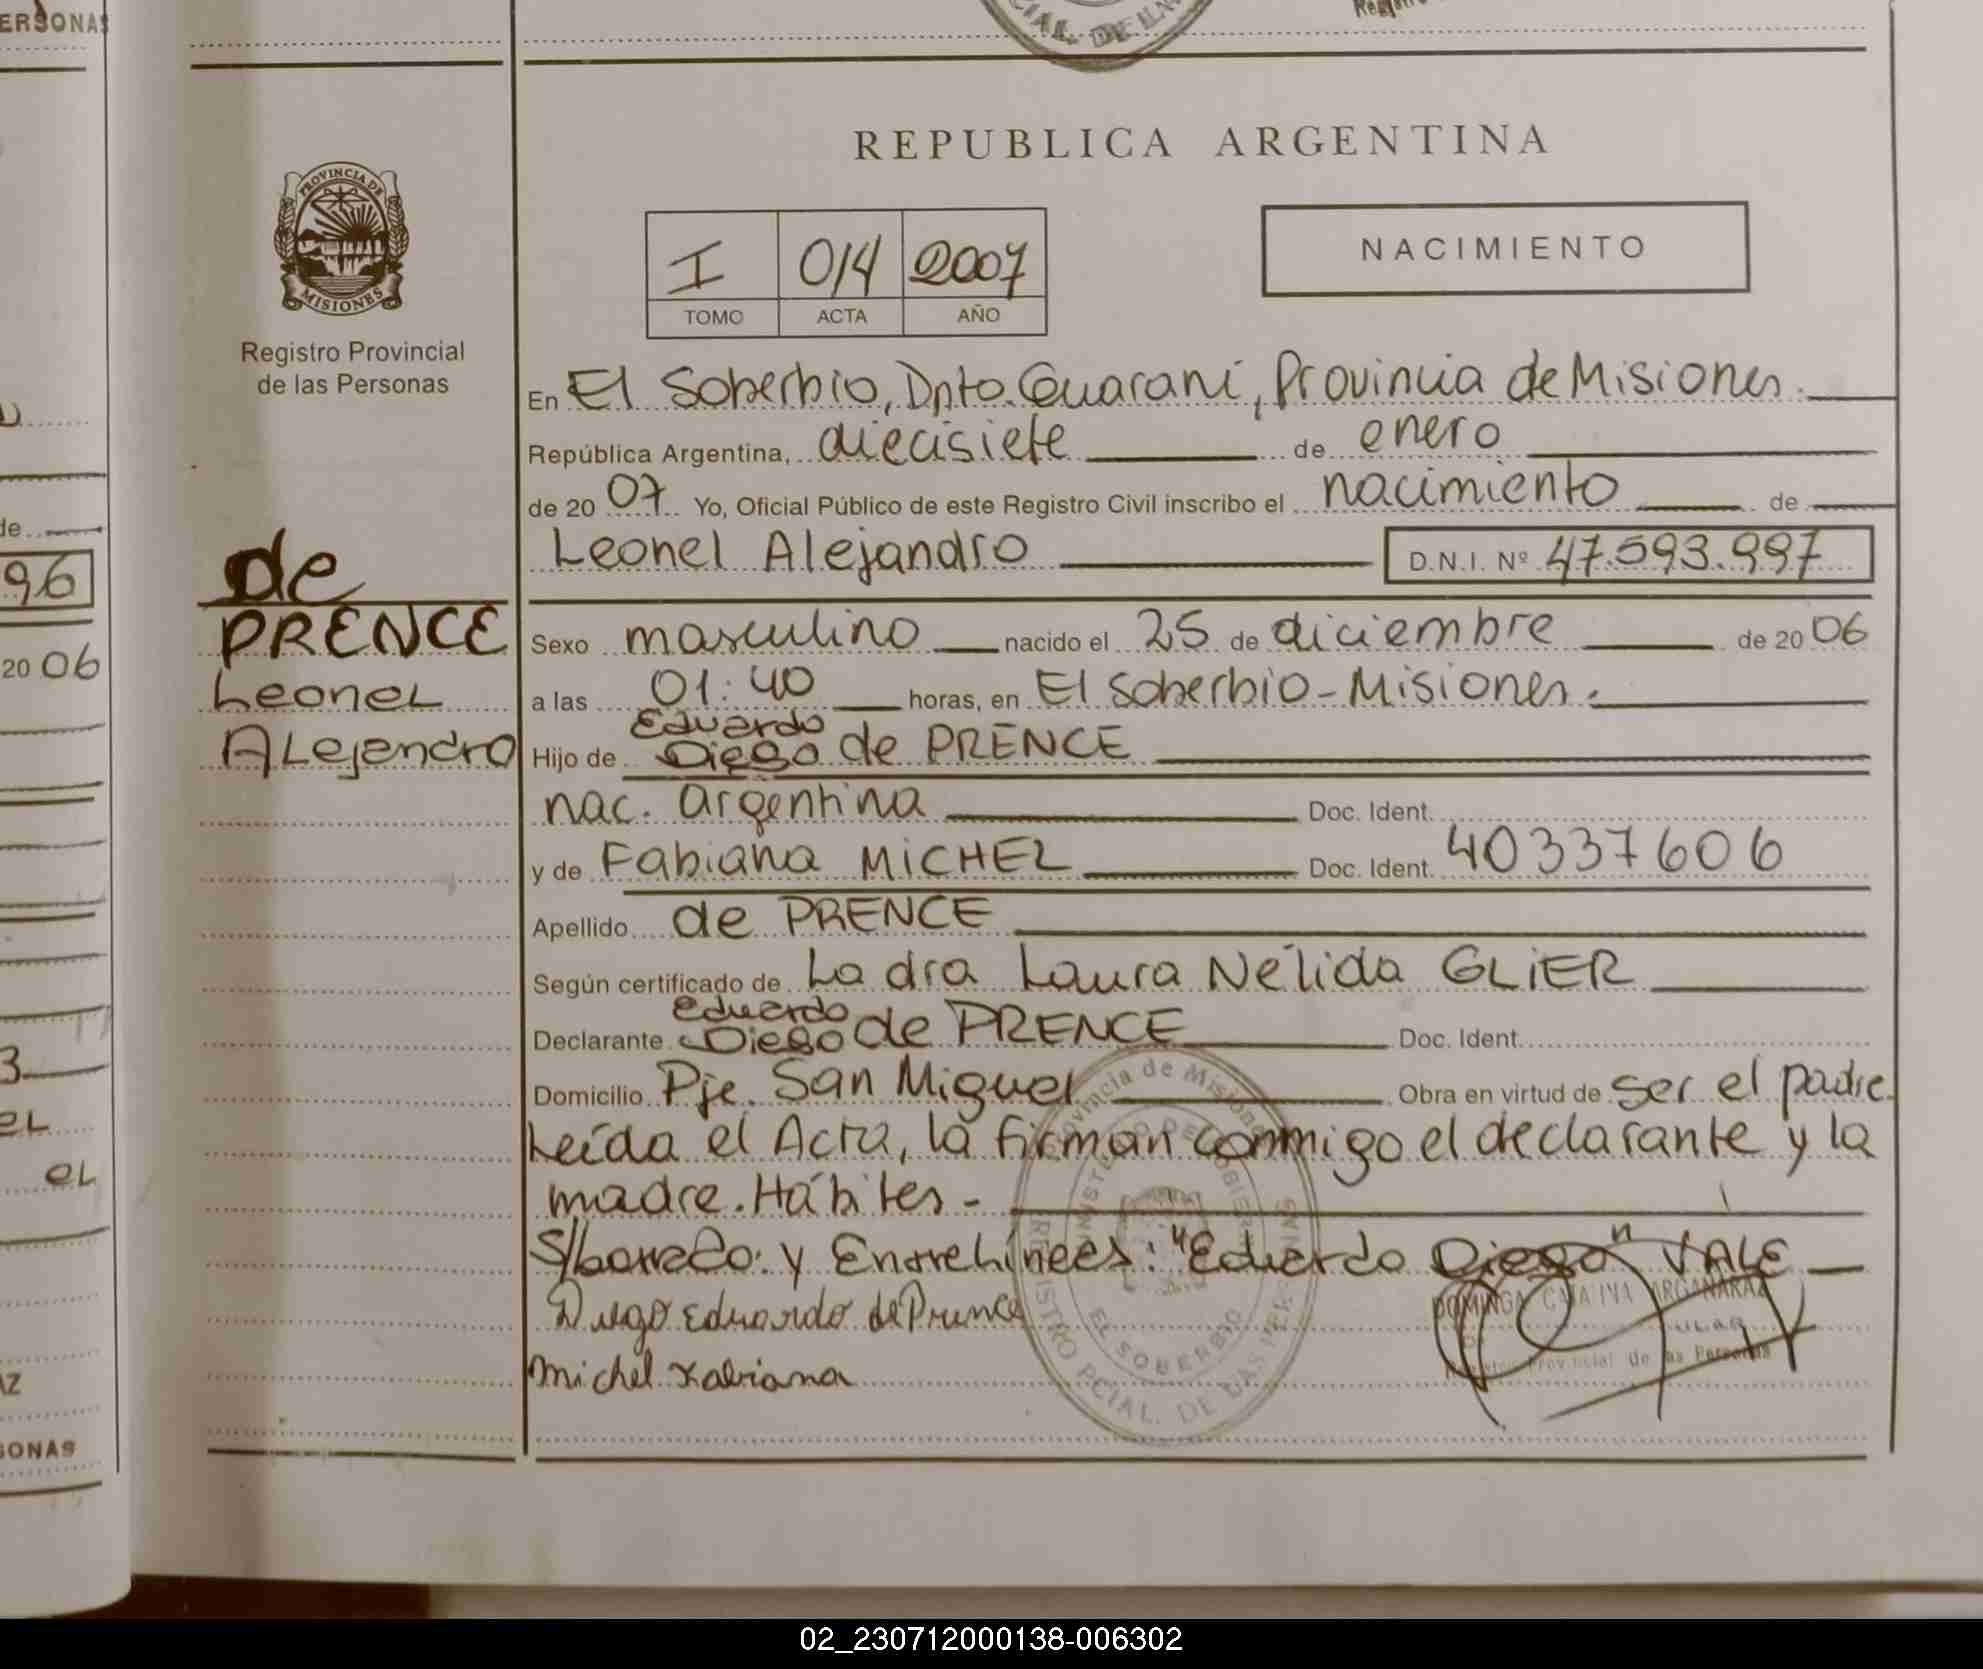 ERSONAS
CIAL. DE LAS
REPUBLICA ARGENTINA
PROVINCIA DE
MISIONES
Registro Provincial
de las Personas
I 014 2007
TOMO ACTA AÑO
NACIMIENTO
En El Soberbio, Dpto. Guaraní, Provincia de Misiones.
República Argentina, diecisiete de enero
de 20 07 Yo, Oficial Público de este Registro Civil inscribo el nacimiento de
Leonel Alejandro D.N.I. Nº 47.593.997
de
PRENCE
Leonel
Alejandro
Sexo masculino nacido el 25 de diciembre de 20 06
a las 01:40 horas, en El Soberbio - Misiones.
Eduardo
Hijo de Diego de PRENCE
nac. argentina Doc. Ident.
y de Fabiana MICHEL Doc. Ident. 40337606
Apellido de PRENCE
Según certificado de La dra Laura Nélida GLIER
Eduardo
Declarante Diego de PRENCE Doc. Ident.
Domicilio Pje. San Miguel Obra en virtud de ser el padre.
Leída el Acta, la firman conmigo el declarante y la
madre. Hábiles -
S/borrado: y Entrelíneas: "Eduardo Diego" VALE
Diego Eduardo de Prence
Michel Fabiana
DOMINGA CATALINA ARGAÑARAZ
TITULAR
Registro Provincial de las Personas
Provincia de Misiones
MINISTERIO DE GOBIERNO
EL SOBERBIO
REGISTRO PCIAL. DE LAS PERSONAS
de
96
20 06
3
EL
EL
AZ
SONAS
02_230712000138-006302